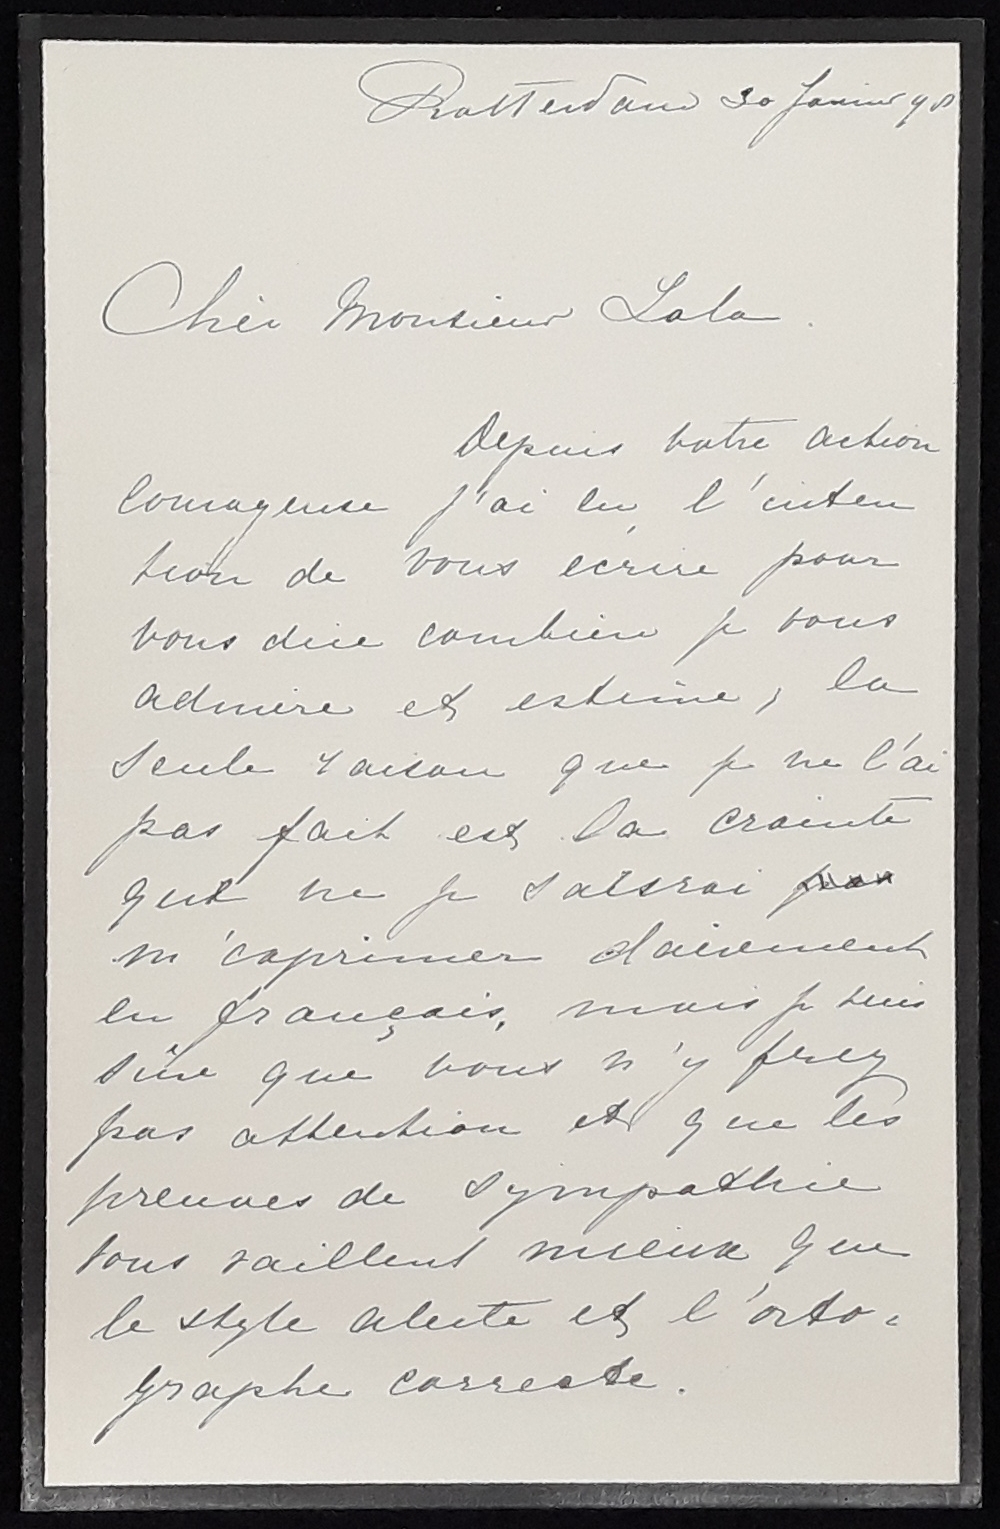 Rotterdam 30 Janvier 98
Cher Monsieur Zola.
Depuis votre action
courageuse j'ai eu l'inten
tion de vous écrire pour
vous dire combien je vous
admire et estime, la
seule raison que je ne l'ai
pas fait est la crainte
que ne je saisrai
m'exprimer clairement
en français, mais je suis
sûre que vous n'y ferez
pas attention et que les
preuves de sympathie
vous vaillent mieux que
le style alerte et l'orto=
graphe correcte.